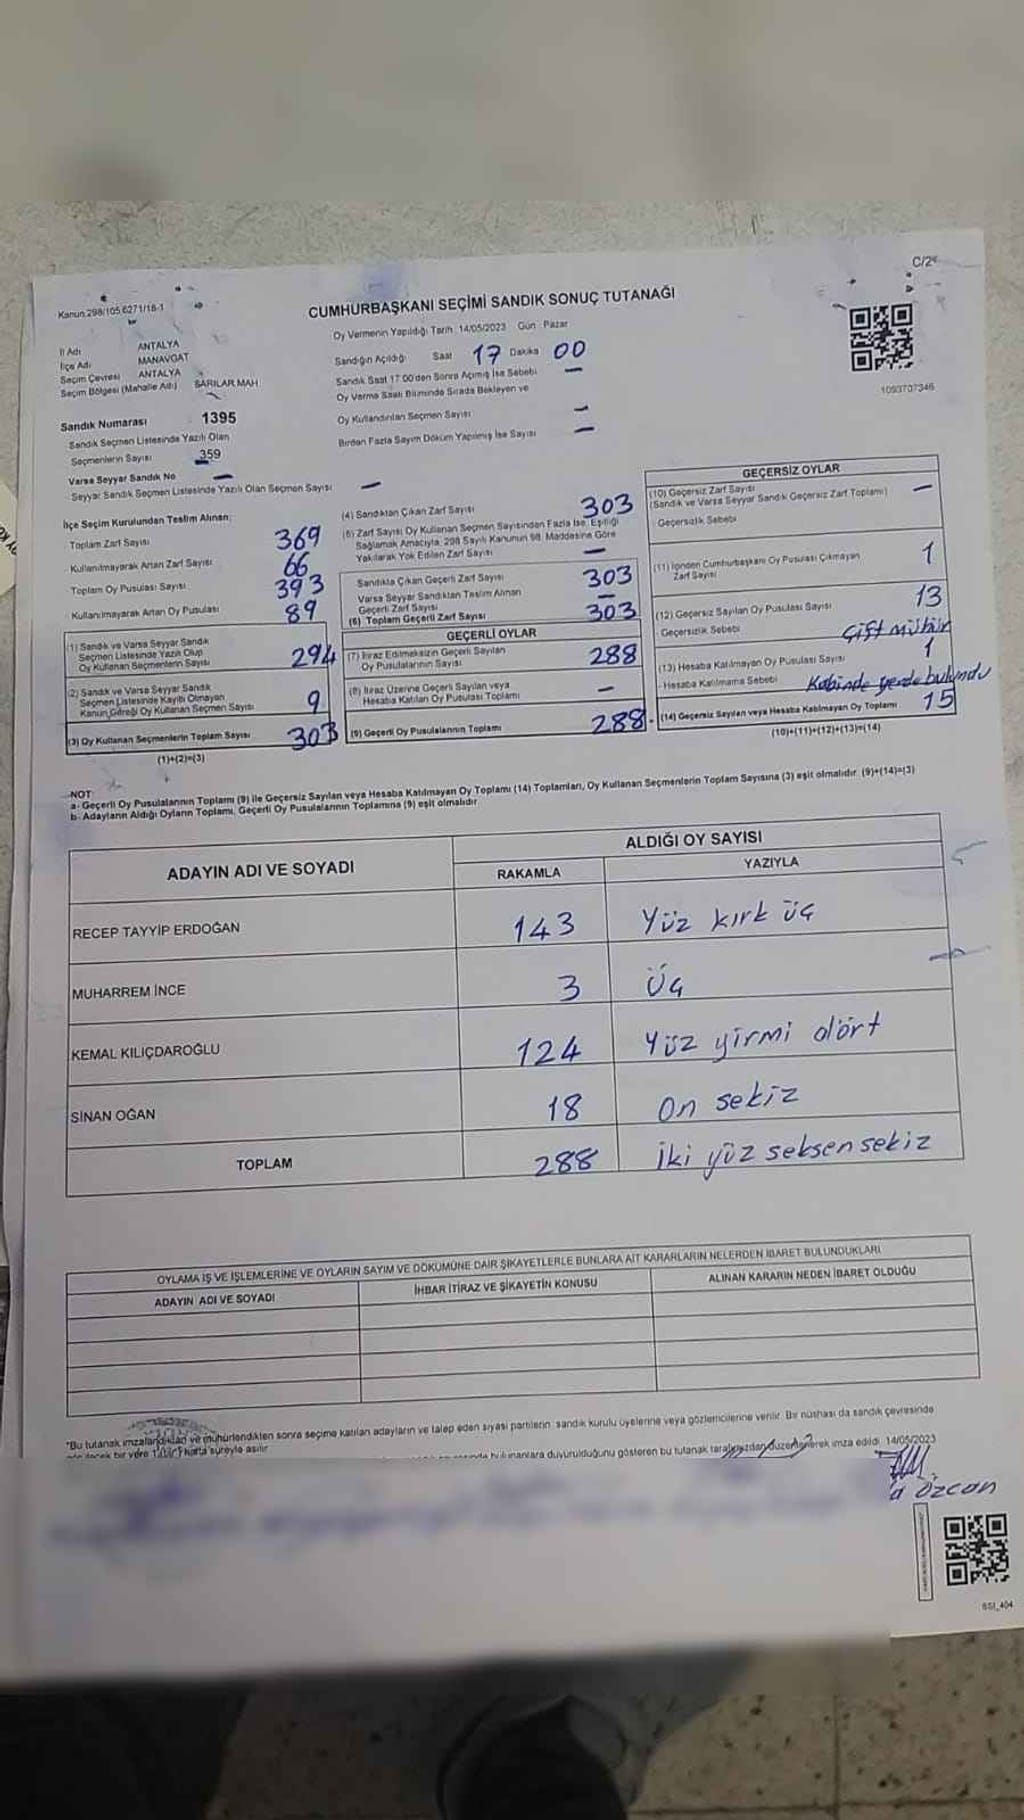 C/2
Kanun:298/105,6271/18-1
CUMHURBAŞKANI SEÇİMİ SANDIK SONUÇ TUTANAĞI
Oy Vermenin Yapıldığı Tarih :14/05/2023 Gün : Pazar
İl Adı ANTALYA
İlçe Adı MANAVGAT
Seçim Çevresi ANTALYA
Seçim Bölgesi (Mahalle Adı) SARILAR MAH
Sandığın Açıldığı Saat 17 Dakika 00
Sandık Saat 17:00'den Sonra Açılmış İse Sebebi —
Oy Verme Saati Bitiminde Sırada Bekleyen ve
Oy Kullandırılan Seçmen Sayısı —
Birden Fazla Sayım Döküm Yapılmış İse Sayısı —
1093707346
Sandık Numarası 1395
Sandık Seçmen Listesinde Yazılı Olan
Seçmenlerin Sayısı 359
Varsa Seyyar Sandık No —
Seyyar Sandık Seçmen Listesinde Yazılı Olan Seçmen Sayısı —
İlçe Seçim Kurulundan Teslim Alınan;
Toplam Zarf Sayısı 369
Kullanılmayarak Artan Zarf Sayısı 66
Toplam Oy Pusulası Sayısı 393
Kullanılmayarak Artan Oy Pusulası 89
(1) Sandık ve Varsa Seyyar Sandık
Seçmen Listesinde Yazılı Olup
Oy Kullanan Seçmenlerin Sayısı 294
(2) Sandık ve Varsa Seyyar Sandık
Seçmen Listesinde Kayıtlı Olmayan
Kanun Gereği Oy Kullanan Seçmen Sayısı 9
(3) Oy Kullanan Seçmenlerin Toplam Sayısı 303
(1)+(2)=(3)
(4) Sandıktan Çıkan Zarf Sayısı 303
(5) Zarf Sayısı Oy Kullanan Seçmen Sayısından Fazla İse, Eşitliği
Sağlamak Amacıyla, 298 Sayılı Kanunun 98. Maddesine Göre
Yakılarak Yok Edilen Zarf Sayısı —
Sandıkta Çıkan Geçerli Zarf Sayısı 303
Varsa Seyyar Sandıktan Teslim Alınan
Geçerli Zarf Sayısı —
(6) Toplam Geçerli Zarf Sayısı 303
GEÇERLİ OYLAR
(7) İtiraz Edilmeksizin Geçerli Sayılan
Oy Pusulalarının Sayısı 288
(8) İtiraz Üzerine Geçerli Sayılan veya
Hesaba Katılan Oy Pusulaları Toplamı —
(9) Geçerli Oy Pusulalarının Toplamı 288
GEÇERSİZ OYLAR
(10) Geçersiz Zarf Sayısı
(Sandık ve Varsa Seyyar Sandık Geçersiz Zarf Toplamı) —
Geçersizlik Sebebi
(11) İçinden Cumhurbaşkanı Oy Pusulası Çıkmayan
Zarf Sayısı 1
(12) Geçersiz Sayılan Oy Pusulası Sayısı 13
Geçersizlik Sebebi Çift mühür
(13) Hesaba Katılmayan Oy Pusulası Sayısı 1
Hesaba Katılmama Sebebi Kabinde yerde bulundu
(14) Geçersiz Sayılan veya Hesaba Katılmayan Oy Toplamı 15
(10)+(11)+(12)+(13)=(14)
NOT:
a- Geçerli Oy Pusulalarının Toplamı (9) ile Geçersiz Sayılan veya Hesaba Katılmayan Oy Toplamı (14) Toplamları, Oy Kullanan Seçmenlerin Toplam Sayısına (3) eşit olmalıdır. (9)+(14)=(3)
b- Adayların Aldığı Oyların Toplamı, Geçerli Oy Pusulalarının Toplamına (9) eşit olmalıdır
ADAYIN ADI VE SOYADI ALDIĞI OY SAYISI
RAKAMLA YAZIYLA
RECEP TAYYİP ERDOĞAN 143 Yüz kırk üç
MUHARREM İNCE 3 Üç
KEMAL KILIÇDAROĞLU 124 Yüz yirmi dört
SİNAN OĞAN 18 On sekiz
TOPLAM 288 İki yüz seksen sekiz
OYLAMA İŞ VE İŞLEMLERİNE VE OYLARIN SAYIM VE DÖKÜMÜNE DAİR ŞİKAYETLERLE BUNLARA AİT KARARLARIN NELERDEN İBARET BULUNDUKLARI
ADAYIN ADI VE SOYADI İHBAR İTİRAZ VE ŞİKAYETİN KONUSU ALINAN KARARIN NEDEN İBARET OLDUĞU
*Bu tutanak imzalandıktan ve mühürlendikten sonra seçime katılan adayların ve talep eden siyasi partilerin sandık kurulu üyelerine veya gözlemcilerine verilir. Bir nüshası da sandık çevresinde
bir yere 1 hafta süreyle asılır.
bulunanlara duyurulduğunu gösteren bu tutanak tarafımızdan düzenlenerek imza edildi. 14/05/2023
Özcan
SSI_404